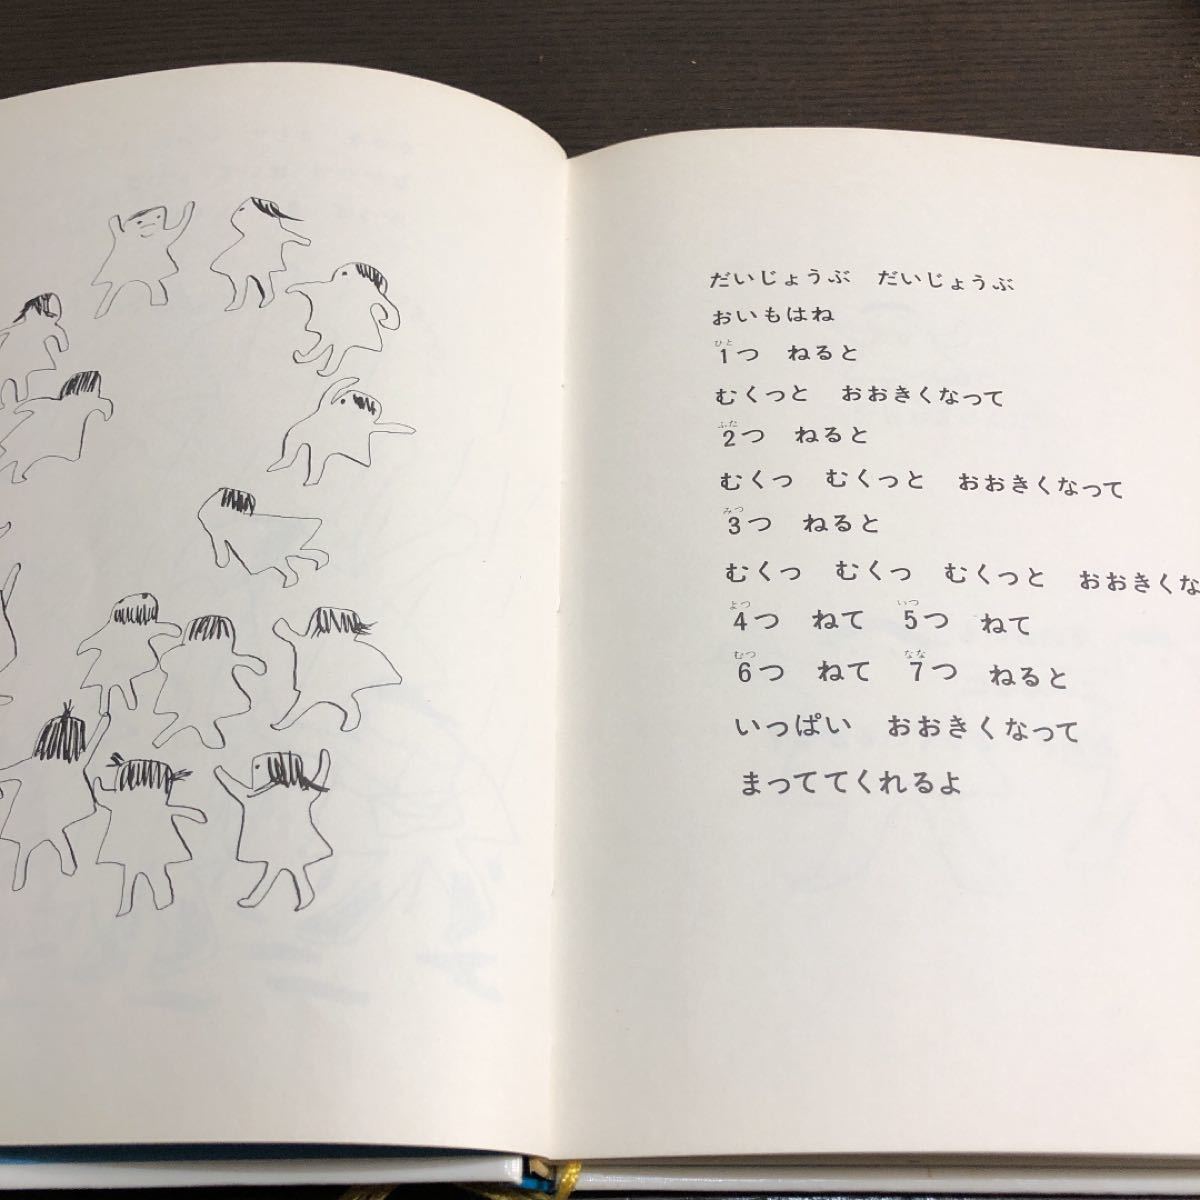 だいじょうぶ　だいじょうぶ
おいもはね
1つ　ねると
むくっと　おおきくなって
2つ　ねると
むくっ　むくっと　おおきくなって
3つ　ねると
むくっ　むくっ　むくっと　おおきくな
4つ　ねて　5つ　ねて
6つ　ねて　7つ　ねると
いっぱい　おおきくなって
まっててくれるよ